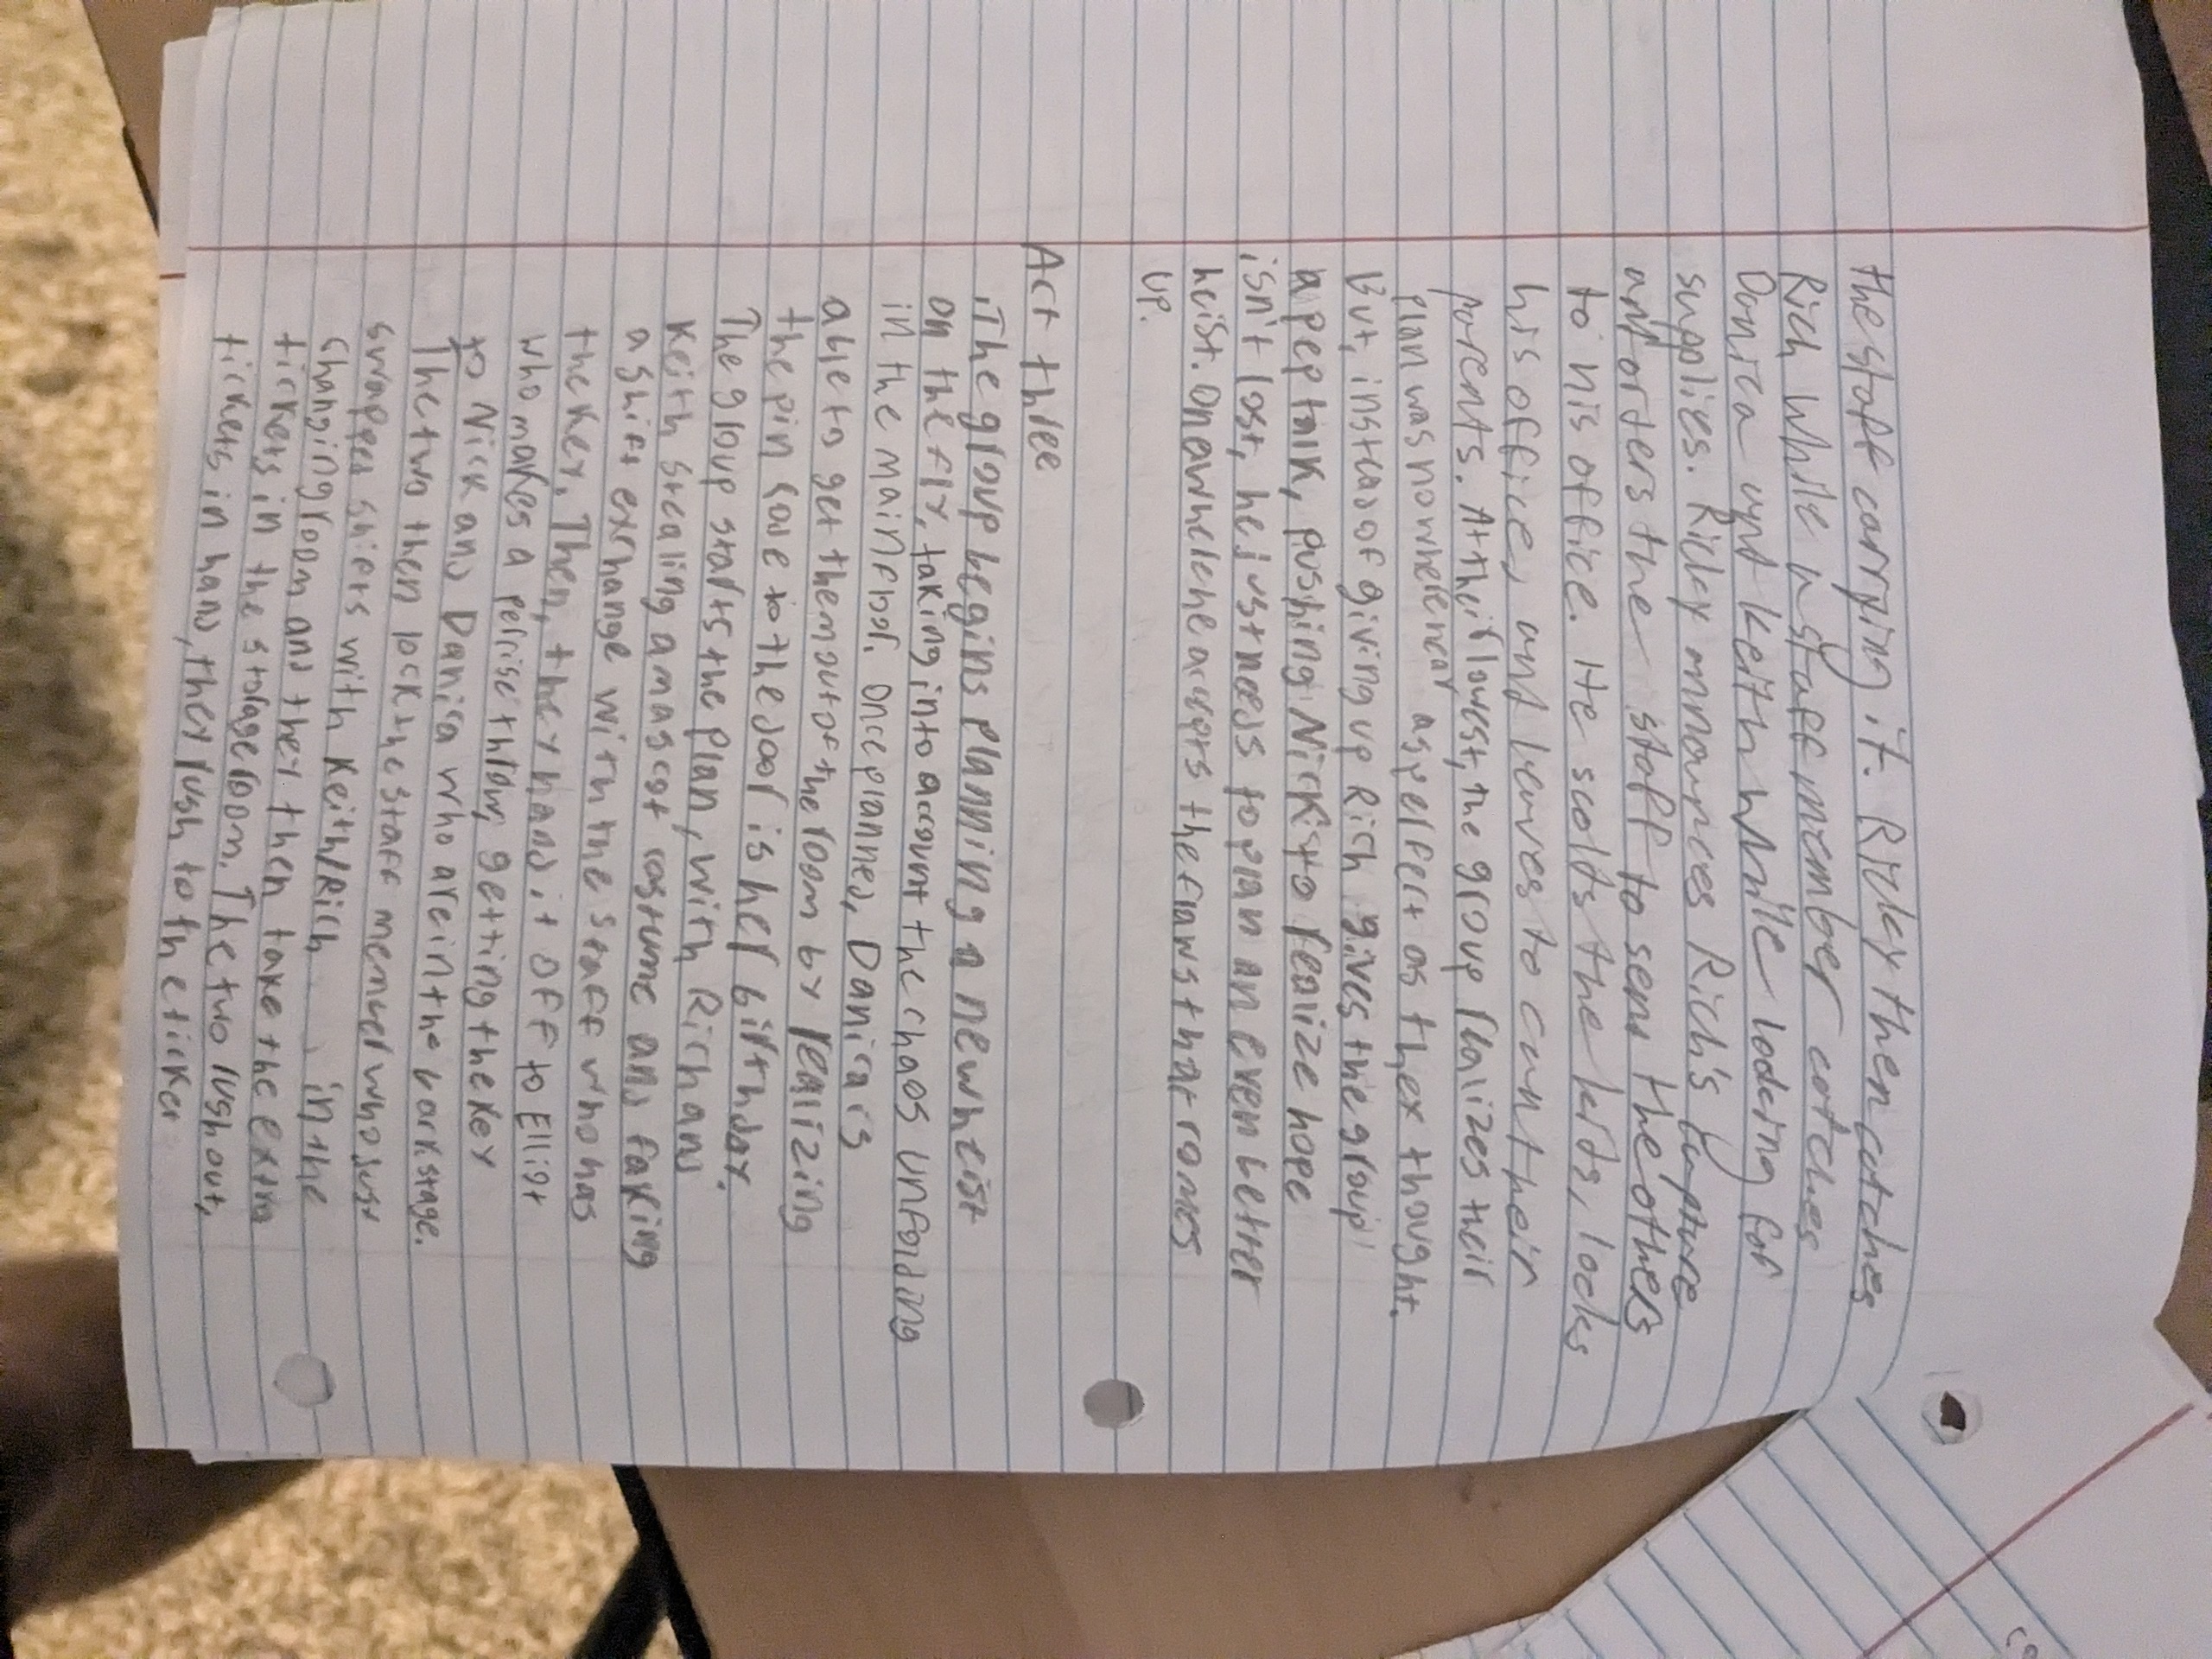 the staff carrying it. Ricky then catches
Rich while a staff member catches
Danica and Keith while looking for
supplies. Ricky announces Rich's capture
and orders the staff to send the others
to his office. He scolds the kids, locks
his office, and leaves to call their
parents. At their lowest, the group rlaizes their
plan was nowhere near as perfect as they thought.
But, instead of giving up Rich gives the group
a pep talk, pushing Nick to realize hope
isn't lost, he just needs to plan an even better
heist. One where he accepts the flaws that comes
up.
Act three
The group begins planning a new heist
on the fly, taking into account the chaos unfolding
in the main floor. Once planned, Danica is
able to get them out of the room by realizing
the pin code to the door is her birthday.
The group starts the plan, with Rich and
Keith stealing a mascot costume and faking
a shift exchange with the staff who has
the key. Then, they hand it off to Elliot
who makes a percise throw, getting the key
to Nick and Danica who are in the backstage.
The two then lock the staff member who just
swapped shifts with Keith/Rich in the
changing room and they then take the extra
tickets in the storage room. The two rush out,
tickets in hand, they rush to the ticket